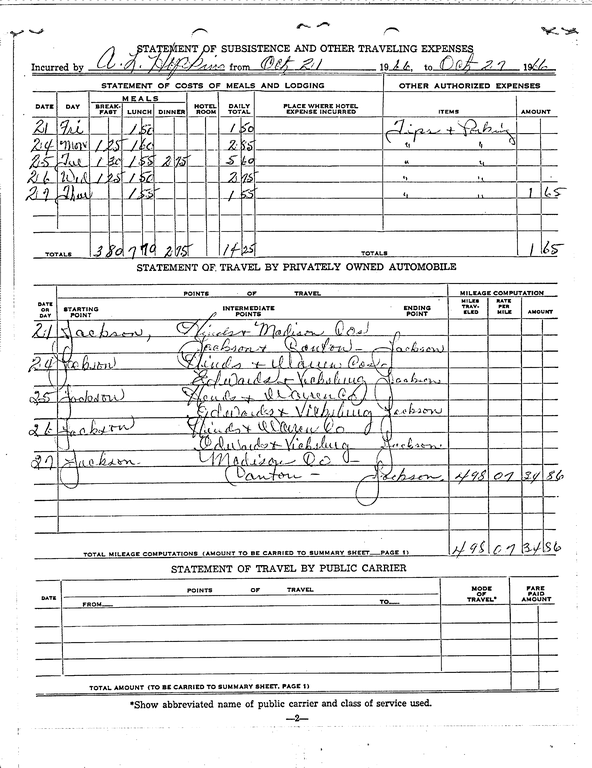 STATEMENT OF SUBSISTENCE AND OTHER TRAVELING EXPENSES
Incurred by A. L. Hopkins from Oct 21 1966, to Oct 27 1966
STATEMENT OF COSTS OF MEALS AND LODGING OTHER AUTHORIZED EXPENSES
MEALS
DATE DAY BREAK-FAST LUNCH DINNER HOTEL ROOM DAILY TOTAL PLACE WHERE HOTEL EXPENSE INCURRED ITEMS AMOUNT
21 Fri 1 50 1 50 Tips & Parking
24 Mon 1 25 1 60 2 85 " "
25 Tue 1 30 1 55 2 75 5 60 " "
26 Wed 1 25 1 50 2 75 " "
27 Thur 1 55 1 55 " " 1 65
TOTALS 3 80 7 70 2 75 14 25 TOTALS 1 65
STATEMENT OF TRAVEL BY PRIVATELY OWNED AUTOMOBILE
POINTS OF TRAVEL MILEAGE COMPUTATION
DATE OR DAY STARTING POINT INTERMEDIATE POINTS ENDING POINT MILES TRAV-ELED RATE PER MILE AMOUNT
21 Jackson, Hinds & Madison Cos
Jackson & Canton - Jackson
24 Jackson Hinds & Warren Cos -
Edwards & Vicksburg Jackson
25 Jackson Hinds & Warren Co
Edwards & Vicksburg Jackson
26 Jackson Hinds & Warren Co
Edwards & Vicksburg Jackson.
27 Jackson. Madison Co -
Canton - Jackson. 498 07 34 86
TOTAL MILEAGE COMPUTATIONS (AMOUNT TO BE CARRIED TO SUMMARY SHEET—PAGE 1) 498 07 34 86
STATEMENT OF TRAVEL BY PUBLIC CARRIER
DATE POINTS OF TRAVEL MODE OF TRAVEL* FARE PAID AMOUNT
FROM— TO—
TOTAL AMOUNT (TO BE CARRIED TO SUMMARY SHEET, PAGE 1)
*Show abbreviated name of public carrier and class of service used.
—2—